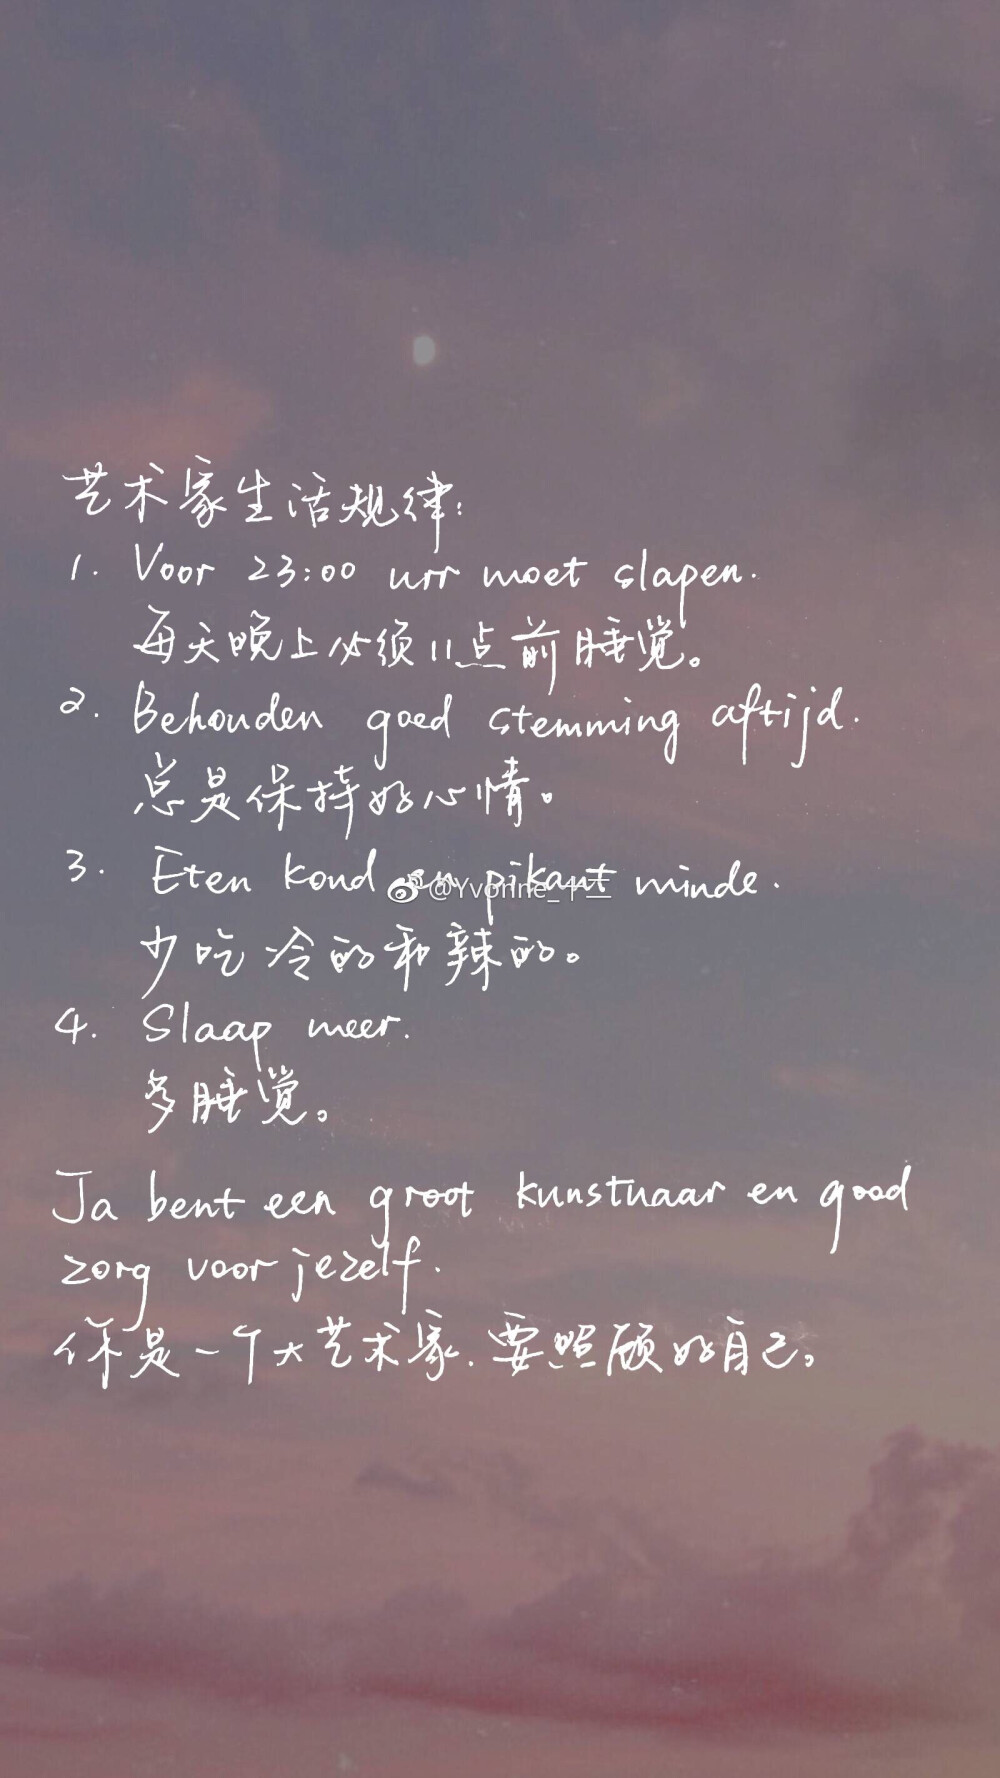 艺术家生活规律:
1. Voor 23:00 urr moet slapen.
每天晚上必须11点前睡觉。
2. Behouden goed stemming aftijd.
总是保持好心情。
3. Eten koud en pikant minde.
@Yvonne_
少吃冷的和辣的。
4. Slaap meer.
多睡觉。
Ja bent een groot kunstnaar en good
zorg voor jezelf.
你是一个大艺术家.要照顾好自己。